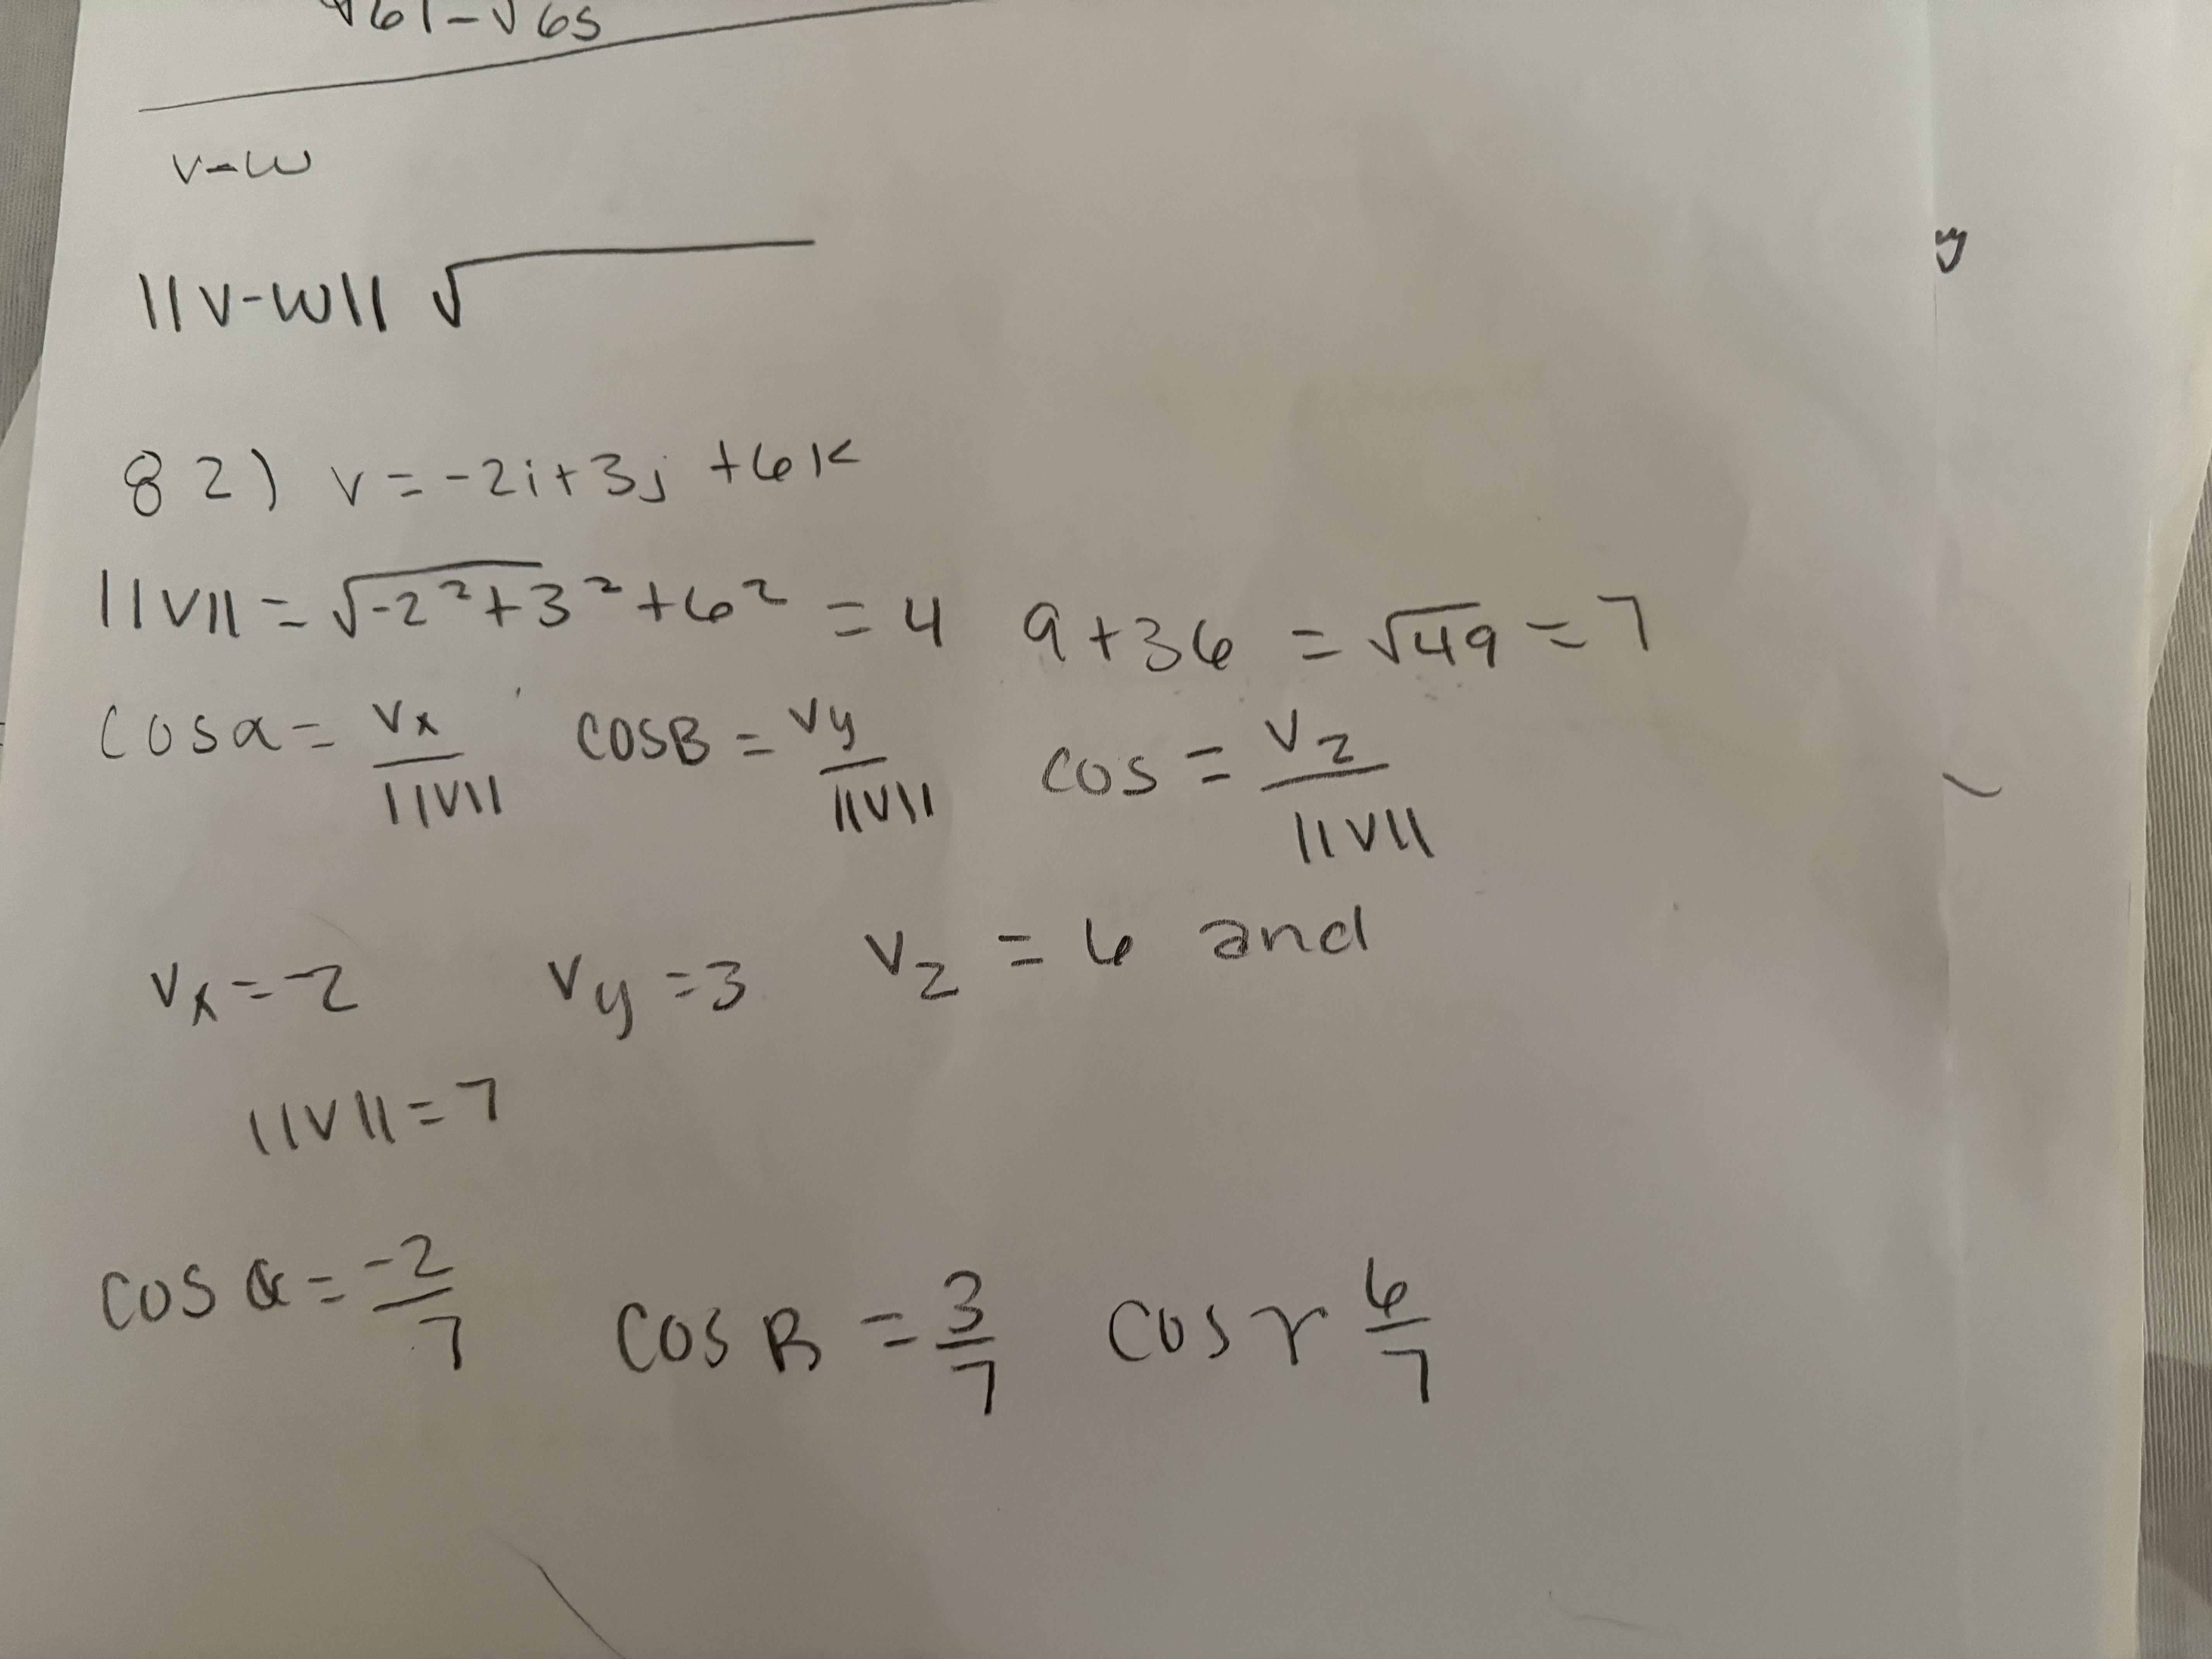 √61-√65
v-w
||v-w|| √
82) v=-2i+3j+6k
||v||=√-2²+3²+6² = 4 9+36 = √49 = 7
cosα= vx/||v|| cosB= vy/||v|| cos = vz/||v||
vx=-2 vy=3 vz = 6 and
||v||=7
cos α= -2/7 cos B = 3/7 cos r 6/7